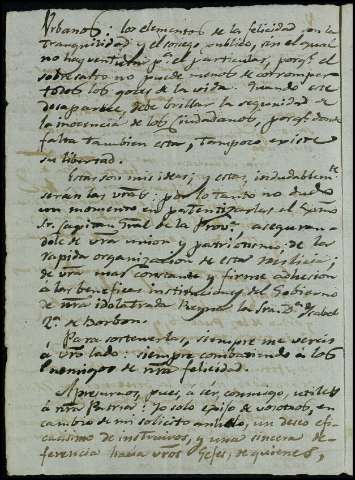 Urbanos: los elementos de la felicidad son la
tranquilidad y el sosiego publico, sin el qual
no hay ventura p.a el particular, porq.e el
sobresalto no puede menos de corromper
todos los goces de la vida. Quando este
desaparece, debe brillar la seguridad de
la inocencia de los Ciudadanos, porq.e donde
falta tambien esta, tampoco existe
su libertad.
Estas son mis ideas; y estas, indudablem.te
seran las vras: por lo tanto no dudo
un momento en patentizarlas al Exmo
Sr. Capitan Gral de la Prov.a aseguran-
dole de vra union y patriotismo; de la
rapida organizacion de esta Milicia;
de vra mas constante y firme adhesion
a las beneficas instituciones del Gobierno
de nra idolatrada Reyna la Sra. D.a Isabel
2.a de Borbon.
Para sostenerlas, siempre me vereis
a vro lado: siempre combatiendo á los
Enemigos de nra felicidad.
Apresuraos, pues, a ser, conmigo, utiles
á nra Patria: Yo solo exijo de vosotros, en
cambio de mi solicito anhelo, un deseo efi-
cacisimo de instruiros, y una sincera de-
ferencia hacia vros Gefes, de quienes,